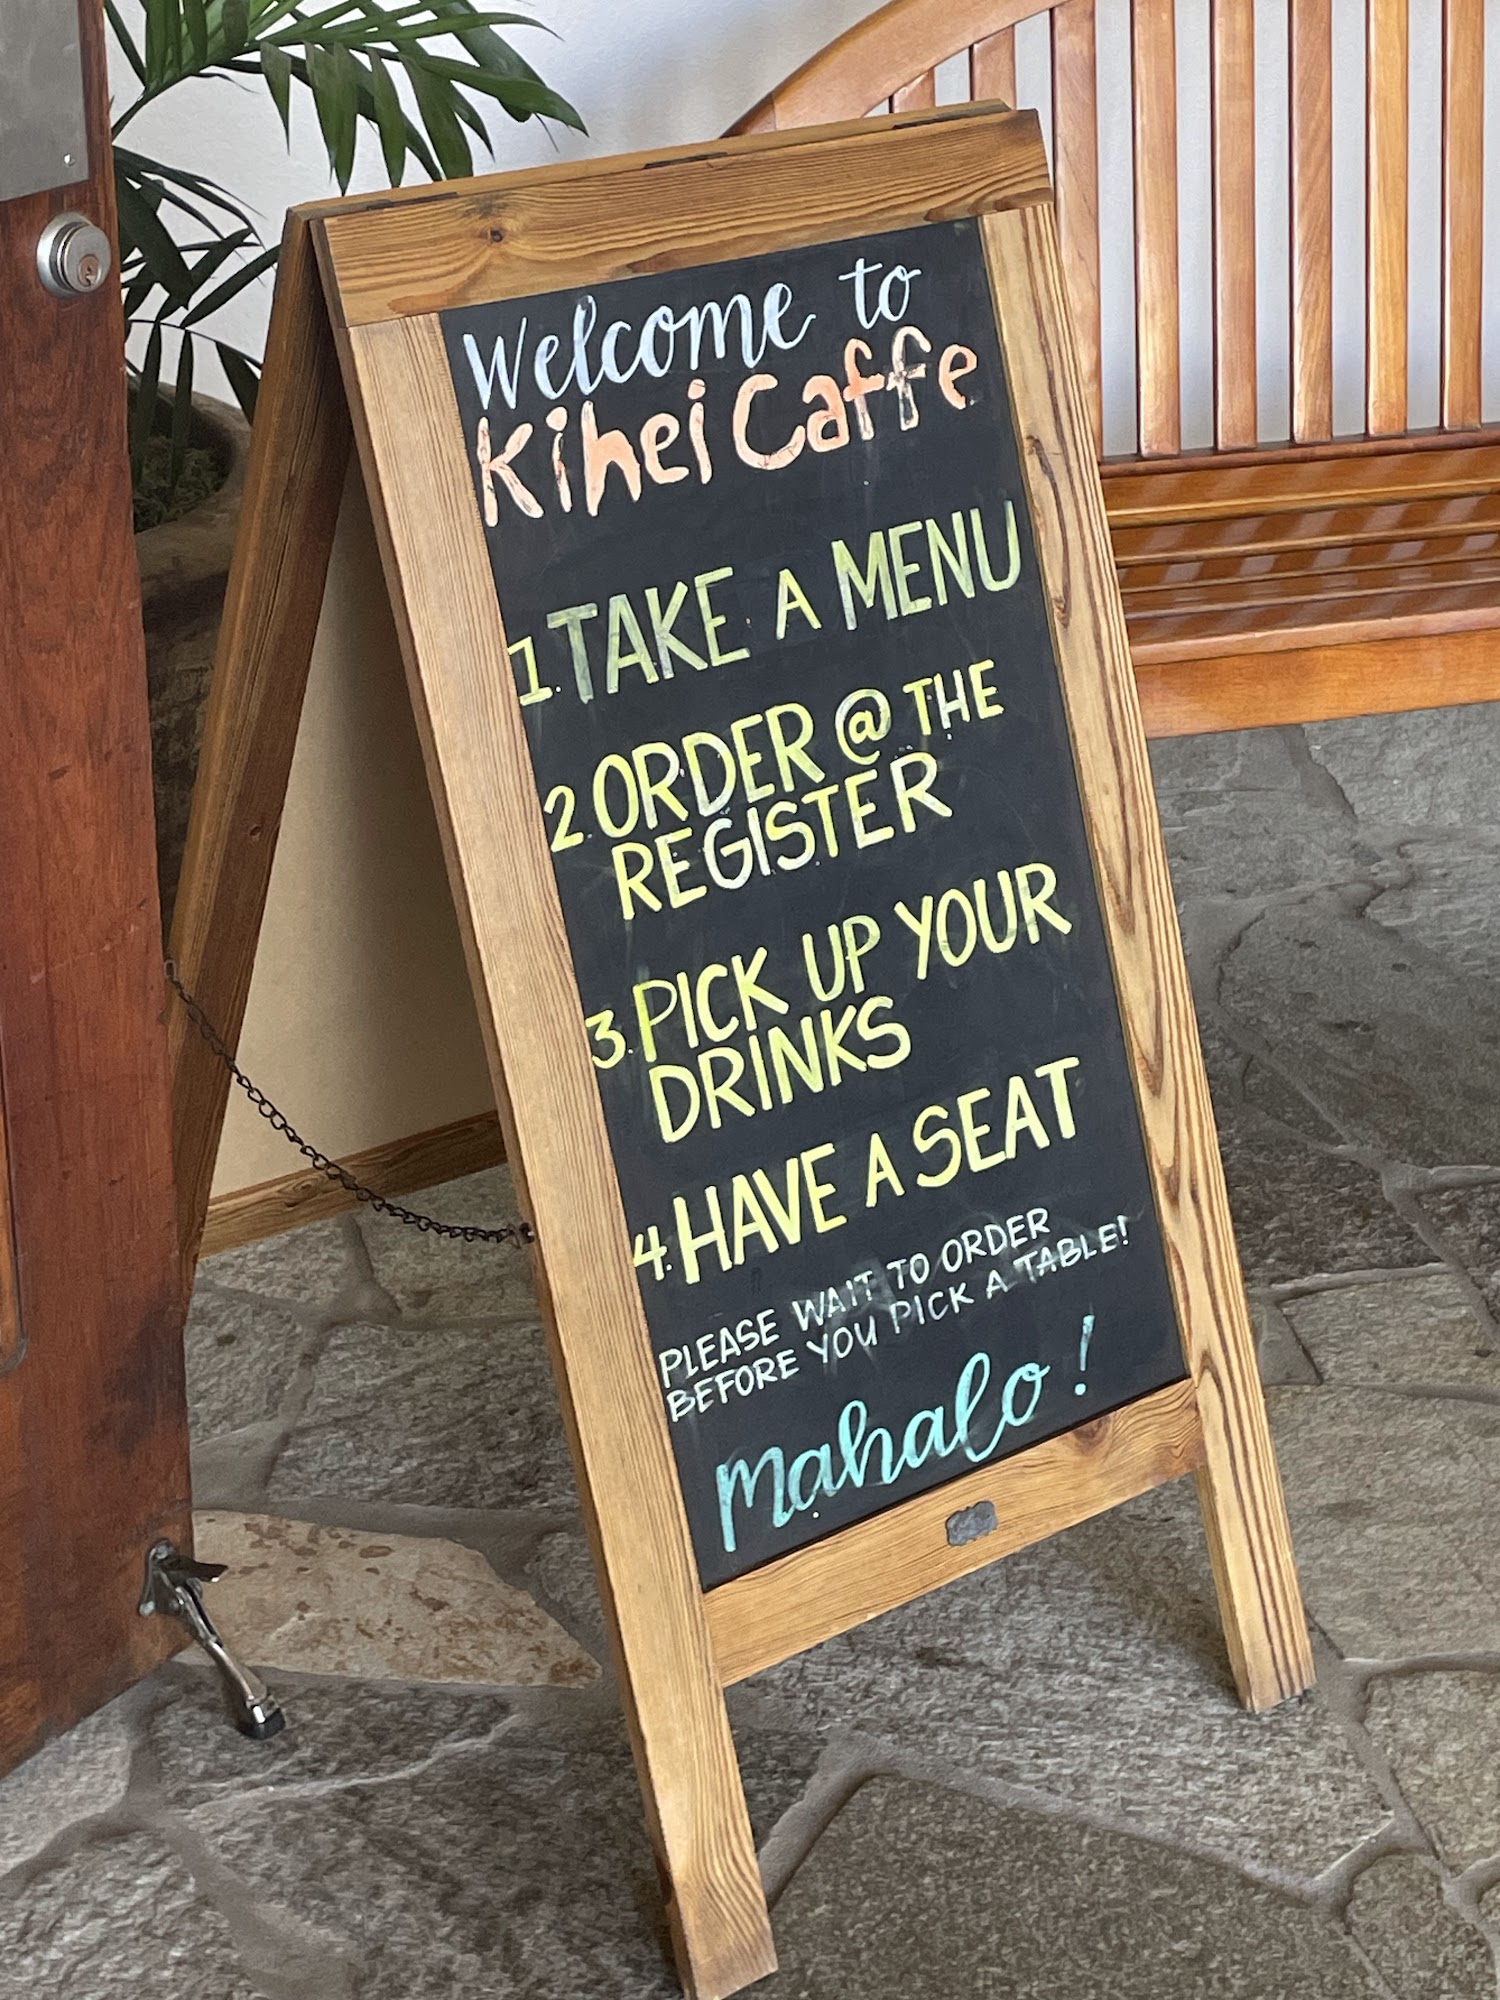 Welcome to
Kihei Caffe
1. TAKE A MENU
2. ORDER @ THE
REGISTER
3. PICK UP YOUR
DRINKS
4. HAVE A SEAT
PLEASE WAIT TO ORDER
BEFORE YOU PICK A TABLE!
mahalo!